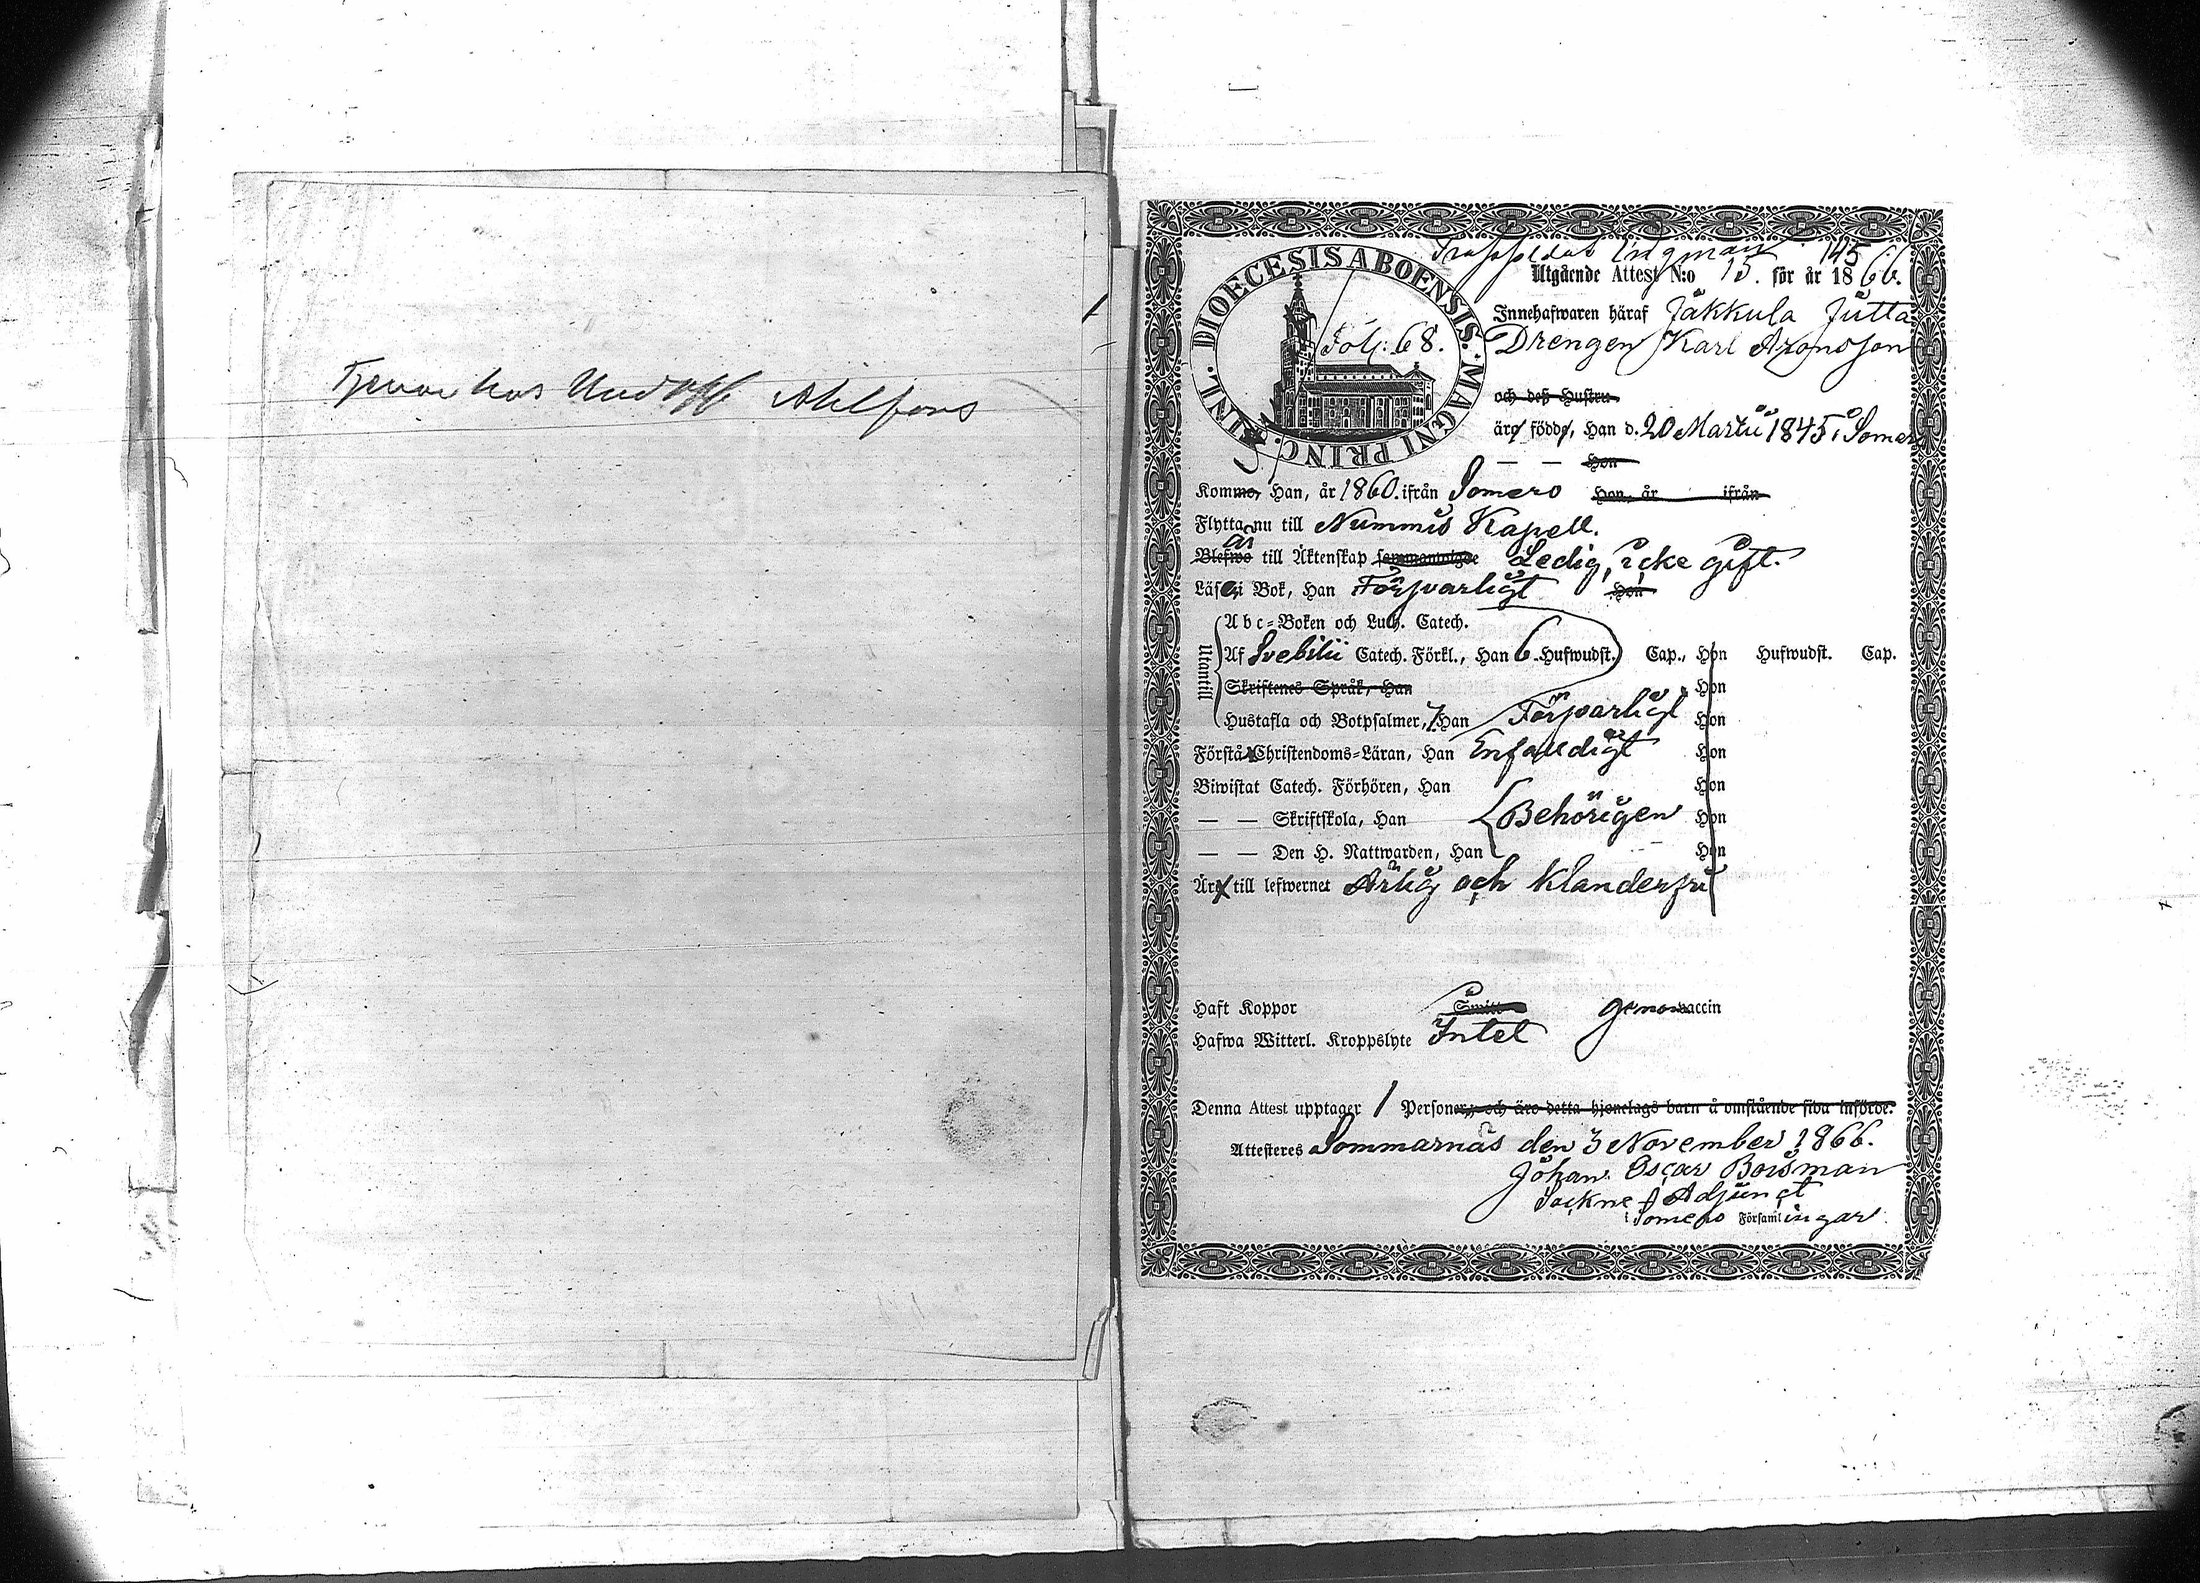 Tjenar hos Und Off Ahlfors
145
Utgående Attest N:o 15. för år 1866.
DIOECESIS ABOENSIS. MAGNI PRINC. FINL.
Fol: 68.
Innehafwaren häraf Jakkula Jutta
Drengen Karl Aronsson
och deß Hustru
äro födde, Han d. 20 Martii 1845 i Somero
— — Hon
Kommo, Han, år 1860. ifrån Somero Hon, år ifrån
Flytta nu till Nummis Kapell.
Blefwo är till Äktenskap Ledig, icke gift.
Läser i Bok, Han Försvarligt Hon
Utantill
Abc-Boken och Luth. Catech.
Af Svebilii Catech. Förkl., Han 6 Hufwudst. Cap., Hon Hufwudst. Cap.
Skriftenes Språk, Han Hon
Hustafla och Botpsalmer, 7 Han Försvarligt Hon
Förstå Christendoms-Läran, Han Enfaldigt Hon
Biwistat Catech. Förhören, Han Hon
— — Skriftskola, Han Behörigen Hon
— — Den H. Nattwarden, Han Hon
Äro till lefwernet Ärlig och klanderfri
Haft Koppor genom vaccin
Hafwa Witterl. Kroppslyte Intet
Denna Attest upptager 1 Personer, och äro detta hjonelags barn å omstående sida införde.
Attesteres Sommarnäs den 3 November 1866.
Johan Oscar Boisman
Sockne Adjunct
i Somero Församlingar